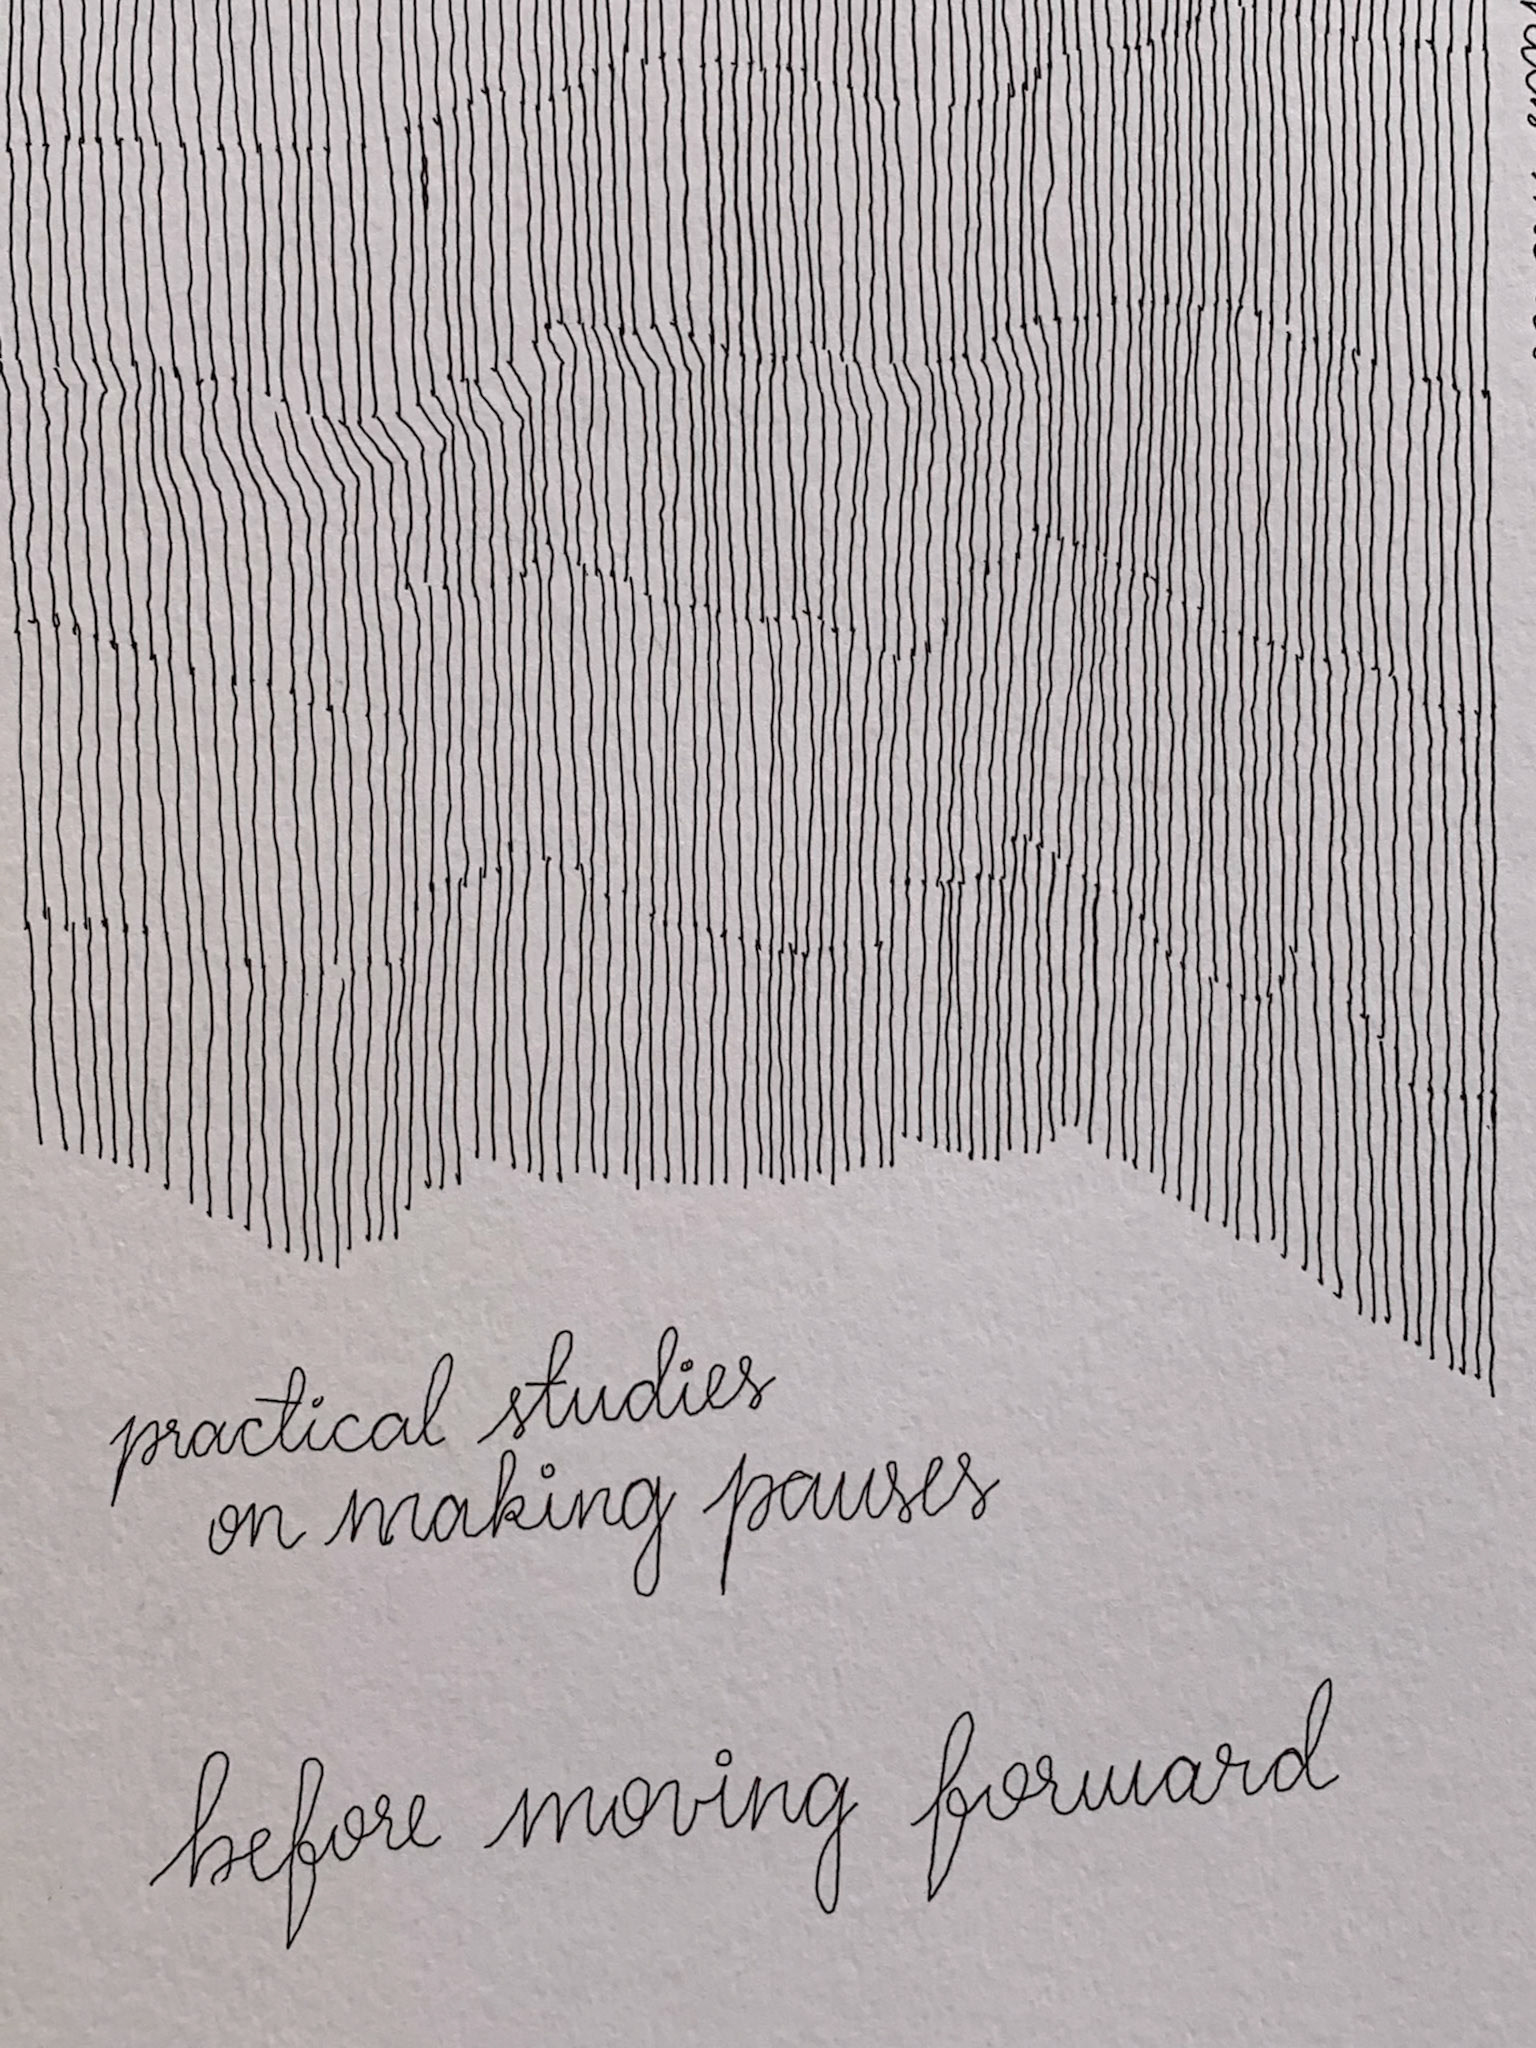 practical studies
on making pauses
before moving forward